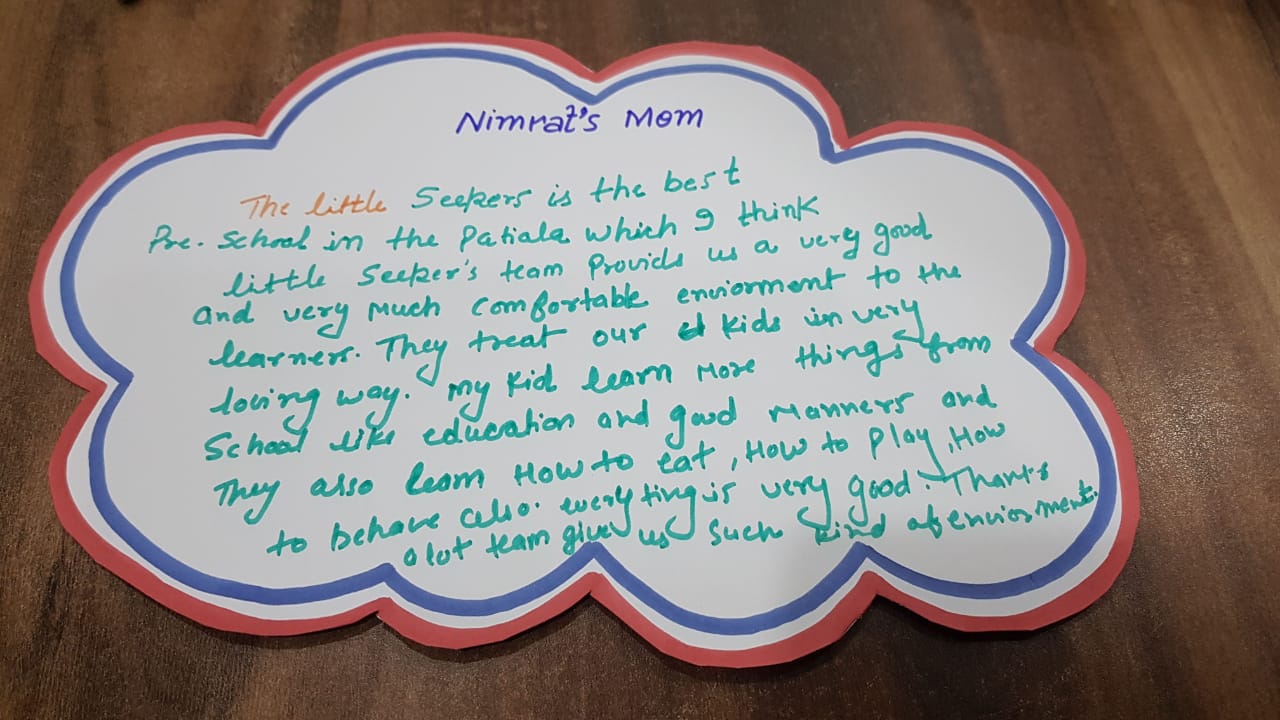 Nimrat's Mom
The little Seekers is the best
Pre. School in the Patiala which I think
little Seeker's team Provide us a very good
and very much comfortable enviorment to the
learners. They treat our kids in very
loving way. My Kid learn more things from
School like education and good manners and
They also learn How to eat, How to Play, How
to behave also. every ting is very good. Thanks
a lot team give us such kind of enviorment.